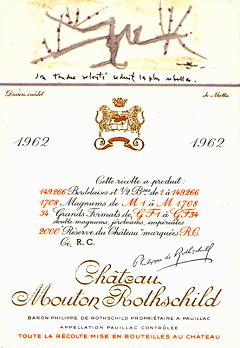 sa tendre volonté séduit la plus rebelle.
Dessin inédit de Matta
1962 1962
Cette récolte a produit:
149.266 Bordelaises et ½ Bses de 1 à 149.266
1708 Magnums de M 1 à M 1708
34 Grands Formats de GF1 à GF34
double magnums, jéroboams, impériales
2000 "Réserve du Château" marquées R.C.
Ce, R.C.
Philippe de Rothschild
Château
Mouton Rothschild
BARON PHILIPPE DE ROTHSCHILD PROPRIÉTAIRE A PAUILLAC
APPELLATION PAUILLAC CONTRÔLÉE
TOUTE LA RÉCOLTE MISE EN BOUTEILLES AU CHÂTEAU